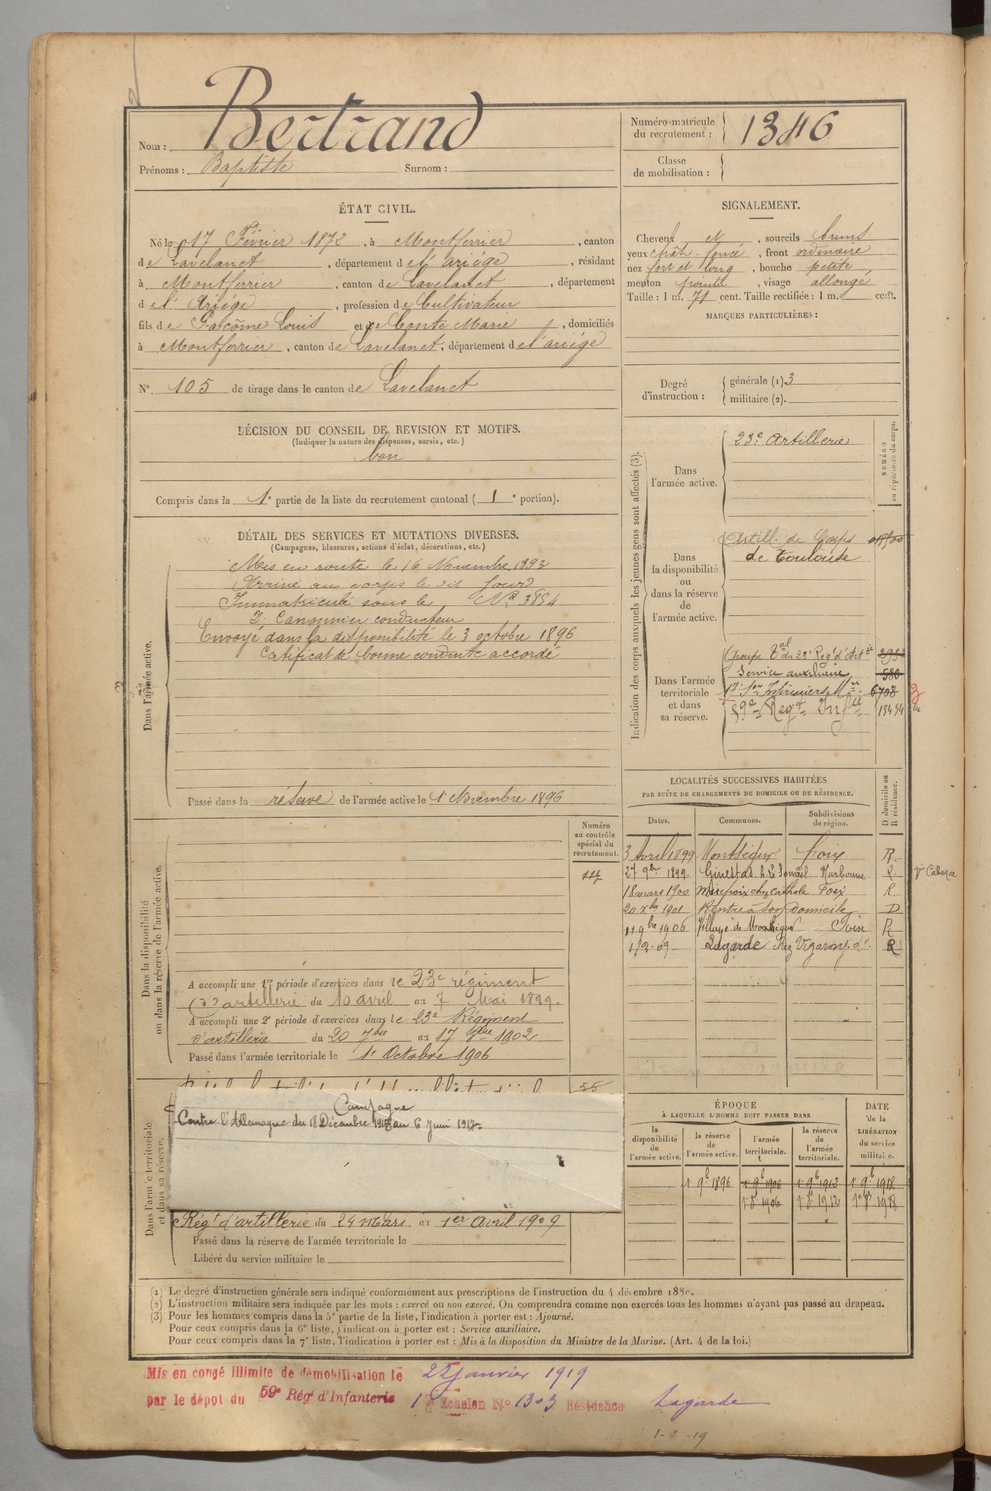 Nom : Bertrand
Prénoms : Baptiste Surnom :
Numéro matricule du recrutement : 1346
Classe de mobilisation :
ÉTAT CIVIL.
Né le 17 Février 1872, à Montferrier, canton
de Lavelanet, département de l'ariége, résidant
à Montferrier, canton de Lavelanet, département
de l'Ariége, profession de Cultivateur
fils de Jacôme Louis et de Conte Marie, domiciliés
à Montferrier, canton de Lavelanet, département de l'ariége
N° 105 de tirage dans le canton de Lavelanet
DÉCISION DU CONSEIL DE REVISION ET MOTIFS.
(Indiquer la nature des dispenses, sursis, etc.)
bon
Compris dans la 1e partie de la liste du recrutement cantonal ( 1 e portion).
SIGNALEMENT.
Cheveux N, sourcils bruns
yeux chât. foncé, front ordinaire
nez fort et long, bouche petite
menton pointu, visage allongé
Taille : 1 m. 71 cent. Taille rectifiée : 1 m. cent.
MARQUES PARTICULIÈRES :
Degré d'instruction :
générale (1) 3
militaire (2).
DÉTAIL DES SERVICES ET MUTATIONS DIVERSES.
(Campagnes, blessures, actions d'éclat, décorations, etc.)
Dans l'armée active.
Mis en route le 16 Novembre 1893
Arrivé au corps le dit jour
Immatriculé sous le N° 3854
2e Canonnier conducteur
Envoyé dans la disponibilité le 3 octobre 1896
Certificat de bonne conduite accordé
Passé dans la réserve de l'armée active le 1er Novembre 1896
Indication des corps auxquels les jeunes gens sont affectés (3).
NUMÉRO au répertoire du corps.
Dans l'armée active.
23e Artillerie
Dans la disponibilité ou dans la réserve de l'armée active.
Artill. de Corps
de Toulouse
Dans l'armée territoriale et dans sa réserve.
Groupe tal du 23e Régt d'Artie
Service auxiliaire 580
17e Son Infirmiers Mres 6708
59e Regt Infie 15434
LOCALITÉS SUCCESSIVES HABITÉES
PAR SUITE DE CHANGEMENTS DE DOMICILE OU DE RÉSIDENCE.
Dates. Communes. Subdivisions de région. D domicile ou R résidence.
3 Avril 1899 Montségur Foix R.
27 9bre 1899 Ginestas Narbonne R
18 mars 1900 Mirepoix Foix R
20 Xbre 1901 Rentré à son Domicile D
11 9bre 1906 Foix R
1/2-09 Lagarde R
Numéro au contrôle spécial du recrutement.
Dans la disponibilité ou dans la réserve de l'armée active.
A accompli une 1re période d'exercices dans le 23e régiment
d'artillerie du 10 avril au 7 Mai 1899.
A accompli une 2e période d'exercices dans le 23e Régiment
d'artillerie du 20 7bre au 17 8bre 1902
Passé dans l'armée territoriale le 1er Octobre 1906
55
Dans l'armée territoriale et dans sa réserve.
Campagne
Contre l'Allemagne du 18 Décembre 1915 au 6 Juin 1917.
Régt d'artillerie du 24 Mars au 1er Avril 1909
Passé dans la réserve de l'armée territoriale le
Libéré du service militaire le
ÉPOQUE
À LAQUELLE L'HOMME DOIT PASSER DANS
la disponibilité de l'armée active.
la réserve de l'armée active.
l'armée territoriale.
la réserve de l'armée territoriale.
DATE de la LIBÉRATION du service militaire.
1er 9b 1896 1er 9b 1906 1er 9b 1912 1er 9b 1918
1er 8b 1906 1er 8b 1912 1er 8b 1918
(1) Le degré d'instruction générale sera indiqué conformément aux prescriptions de l'instruction du 4 décembre 1889.
(2) L'instruction militaire sera indiquée par les mots : exercé ou non exercé. On comprendra comme non exercés tous les hommes n'ayant pas passé au drapeau.
(3) Pour les hommes compris dans la 5e partie de la liste, l'indication à porter est : Ajourné.
Pour ceux compris dans la 6e liste, l'indication à porter est : Service auxiliaire.
Pour ceux compris dans la 7e liste, l'indication à porter est : Mis à la disposition du Ministre de la Marine. (Art. 4 de la loi.)
Mis en congé illimité de démobilisation le 25 janvier 1919
par le dépôt du 59e Régt d'Infanterie 1er Échelon No 1303 Résidence Lagarde